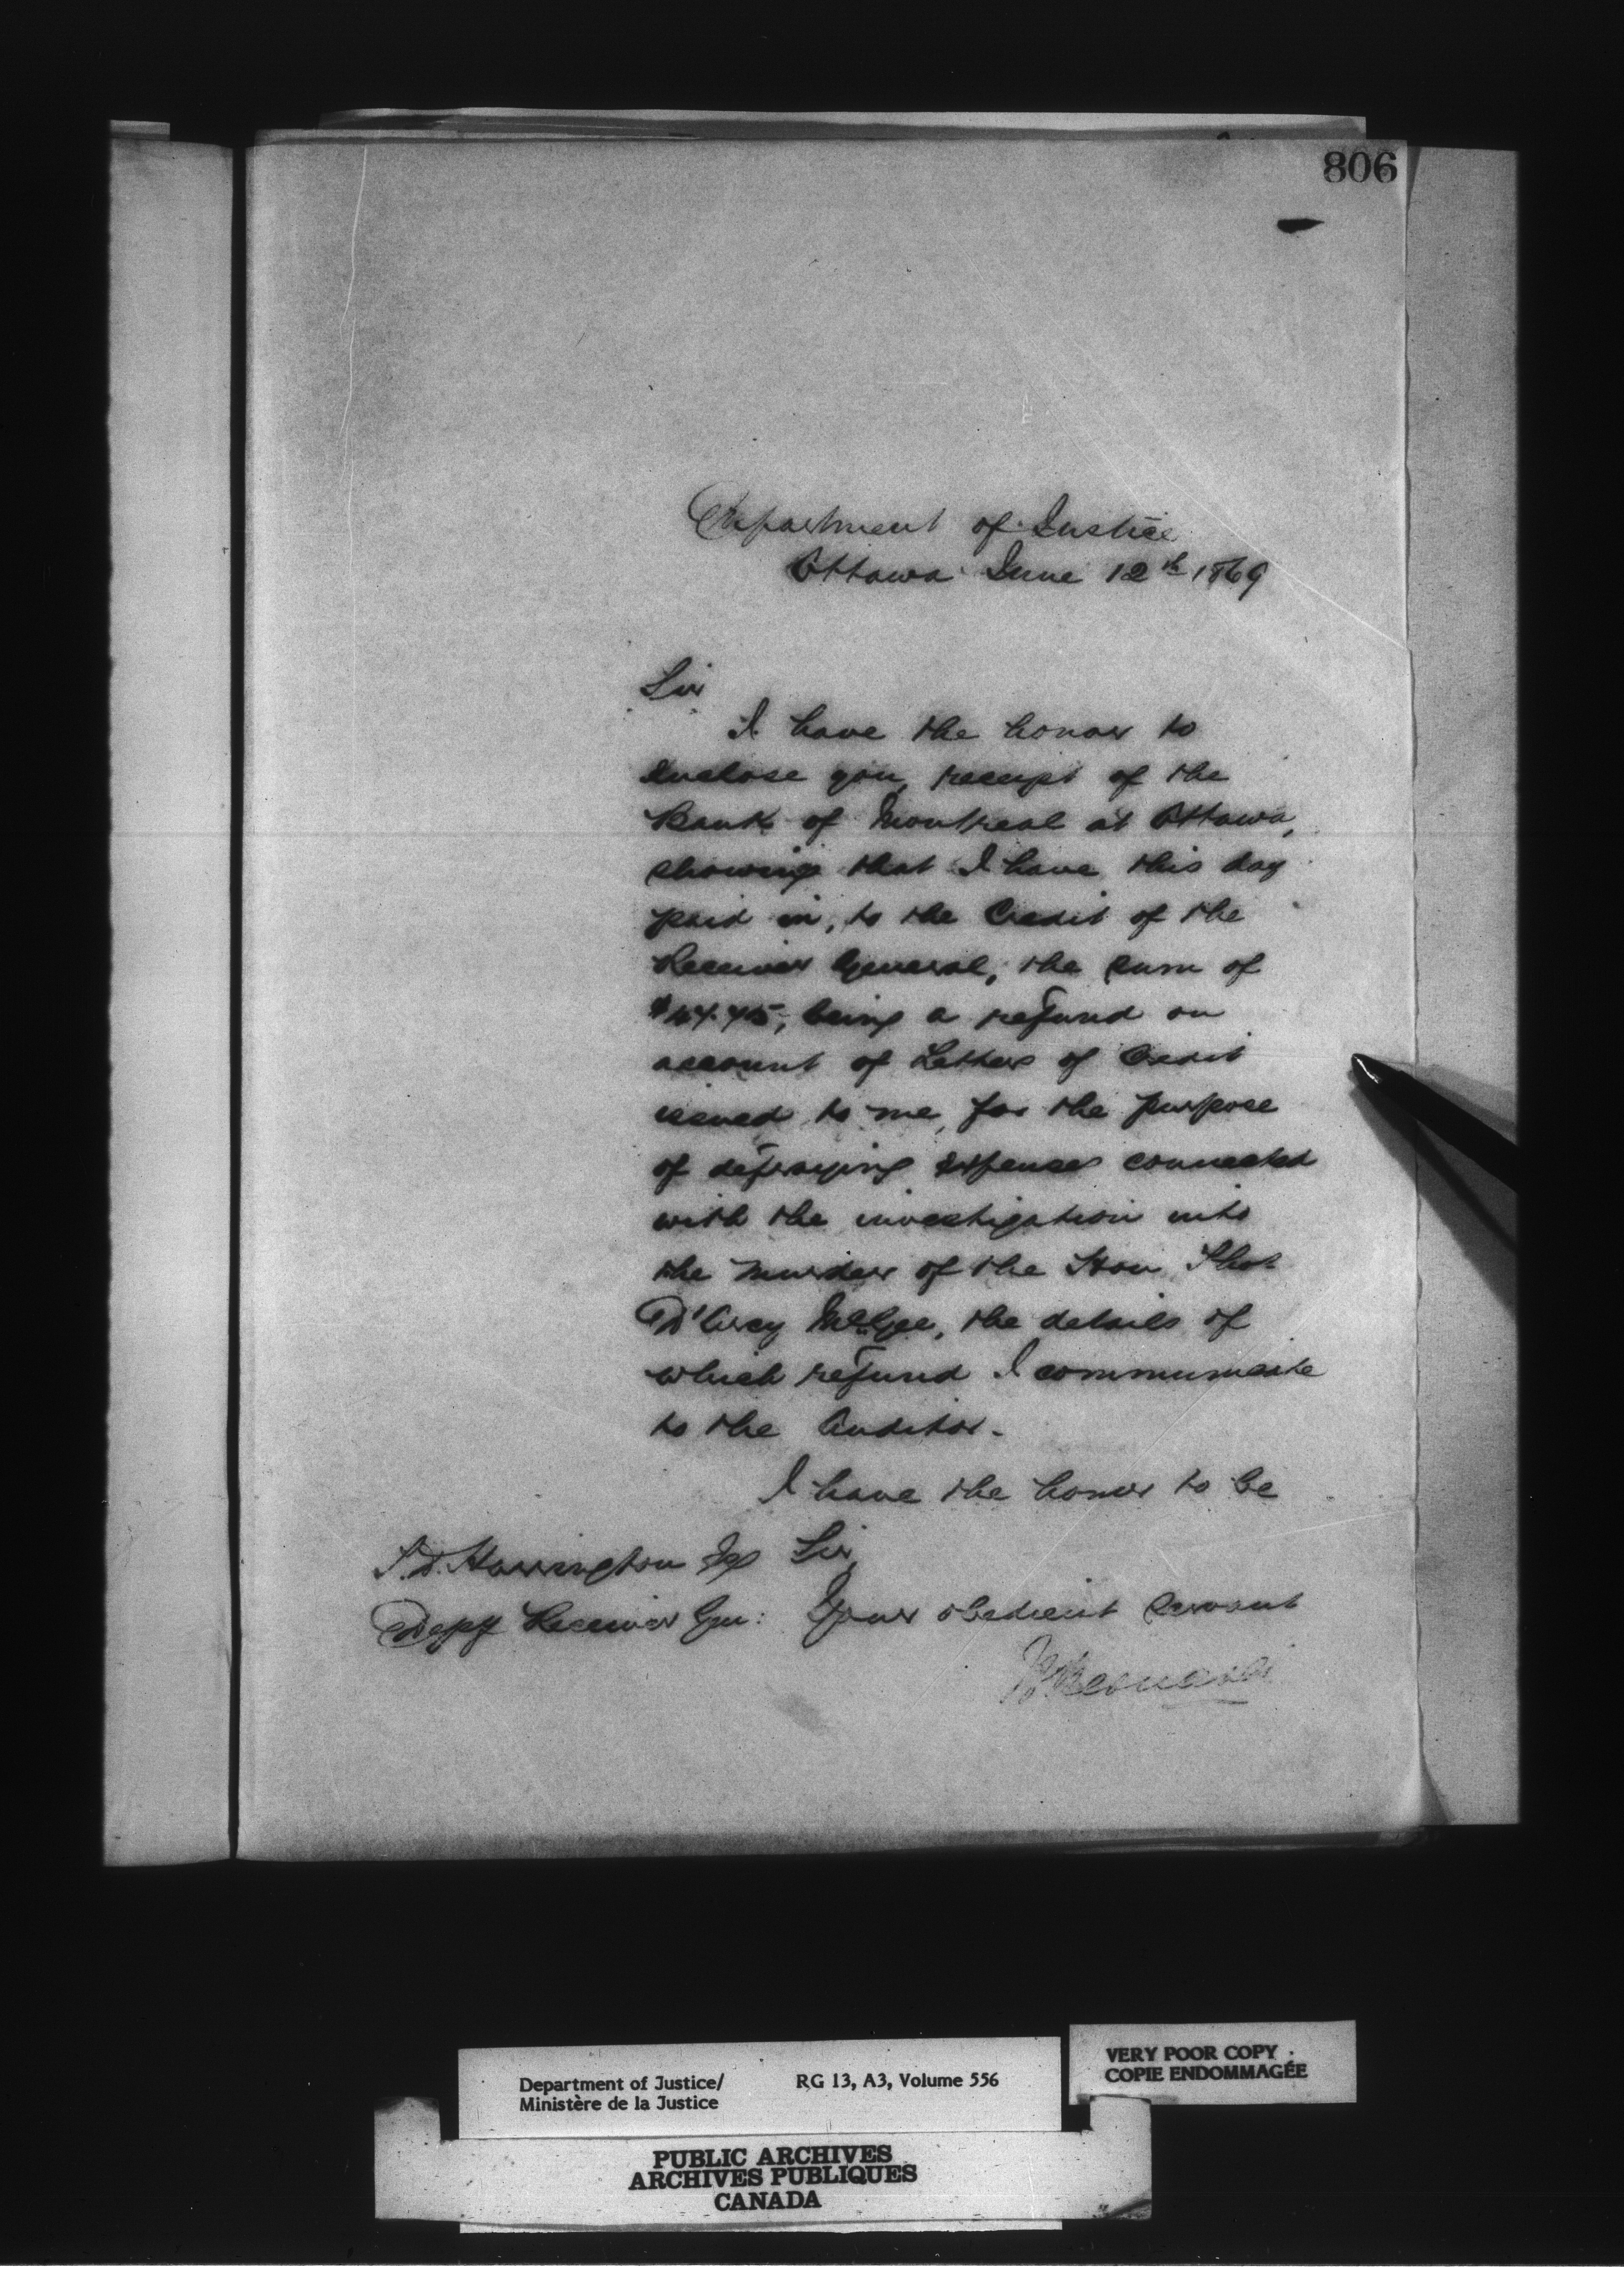 806
Department of Justice
Ottawa June 12th 1869
Sir
I have the honor to
enclose you, receipt of the
Bank of Montreal at Ottawa,
showing that I have this day
paid in, to the Credit of the
Receiver General, the sum of
being a refund on
account of Letters of Credit
issued to me, for the purpose
of defraying expenses connected
with the investigation into
the murder of the Hon Thos
D'Arcy McGee, the details of
which refund I communicate
to the Auditor.
I have the honor to be
T.D. Harrington Esq Sir,
Depy Receiver Gen: Your obedient servant
H Bernard
Department of Justice/ RG 13, A3, Volume 556
Ministère de la Justice
VERY POOR COPY
COPIE ENDOMMAGÉE
PUBLIC ARCHIVES
ARCHIVES PUBLIQUES
CANADA